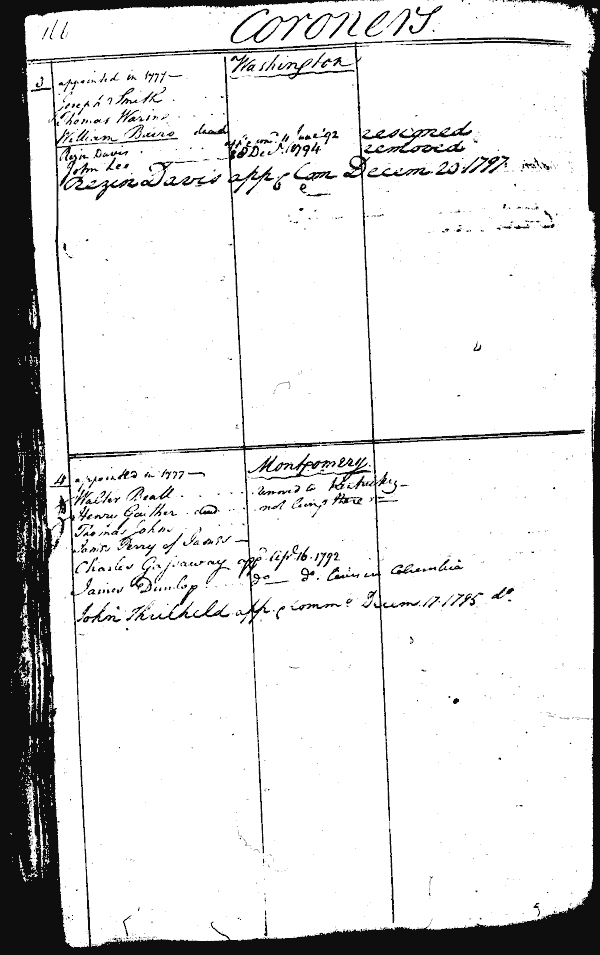 166
Coroners.
Washington
3 appointed in 1777
Joseph Smith
Thomas Waring
William Baird dead
Rezin Davis app & com 4 June 92 resigned
John Lee Dec. 1794 removed
Rezin Davis app & Com Decem 20 1797
Montgomery
4 appointed in 1777
Walter Beall removed to Kentucky
Henry Gaither dead not living there
Thomas Johns
James Perry of James
Charles Gassaway app Apl 16. 1792
James Dunlop do do living in Columbia
John Threlkeld app & comm Decem. 17. 1795 do